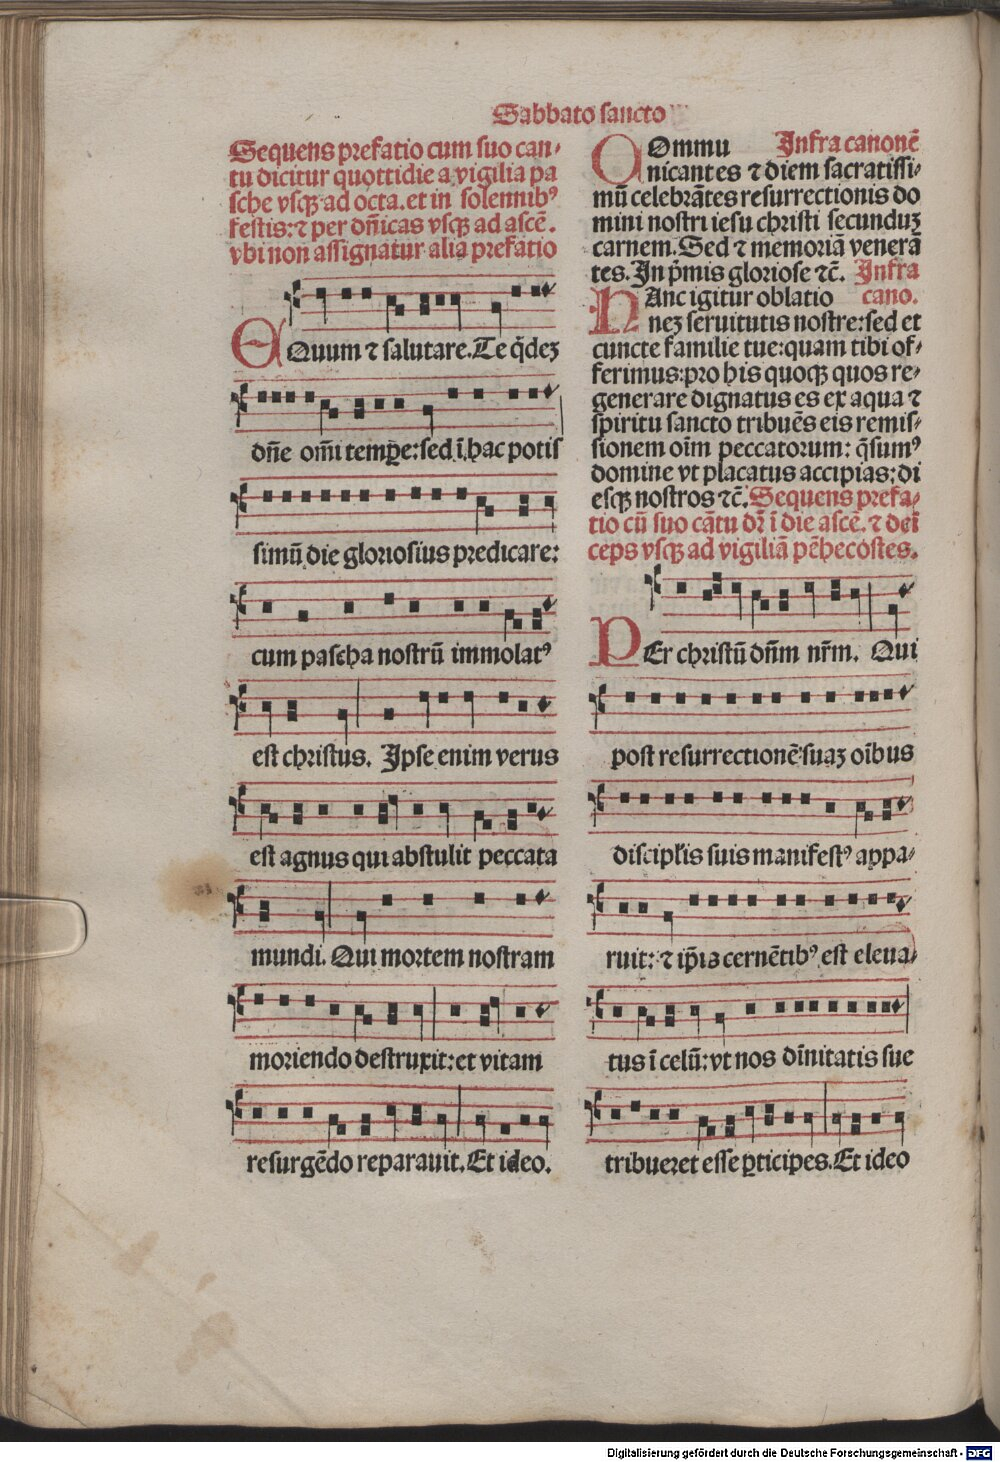 Sabbato sancto
Sequens prefatio cum suo can-
tu dicitur quottidie a vigilia pa
sche vsqꝫ ad octa. et in solennibꝰ
festis: ⁊ per dñicas vsqꝫ ad ascē.
vbi non assignatur alia prefatio
EQuum ⁊ salutare. Te q̄dez
dñe om̄i temꝑe: sed ī hac potis
simū die gloriosius predicare:
cum pascha nostrū immolatꝰ
est christus. Ipse enim verus
est agnus qui abstulit peccata
mundi. Qui mortem nostram
moriendo destruxit: et vitam
resurgēdo reparauit. Et ideo.
COmmu Infra canonē
nicantes ⁊ diem sacratissi-
mū celebrātes resurrectionis do
mini nostri iesu christi secunduꝫ
carnem. Sed ⁊ memoriā venerā
tes. In p̄mis gloriose ⁊c̄. Infra
HAnc igitur oblatio cano.
neꝫ seruitutis nostre: sed et
cuncte familie tue: quam tibi of-
ferimus: pro his quoqꝫ quos re-
generare dignatus es ex aqua ⁊
spiritu sancto tribuēs eis remis-
sionem oīm peccatorum: q̄sumꝰ
domine vt placatus accipias: di
esqꝫ nostros ⁊c̄. Sequens prefa-
tio cū suo cātu dr̄ ī die ascē. ⁊ dei
ceps vsqꝫ ad vigiliā pēthecostes.
PEr christū dñm nr̄m. Qui
post resurrectionē suaꝫ oībus
discipl'is suis manifestꝰ appa-
ruit: ⁊ ip̄is cernētibꝰ est eleua-
tus ī celū: vt nos dīnitatis sue
tribueret esse ꝑticipes. Et ideo
Digitalisierung gefördert durch die Deutsche Forschungsgemeinschaft - DFG